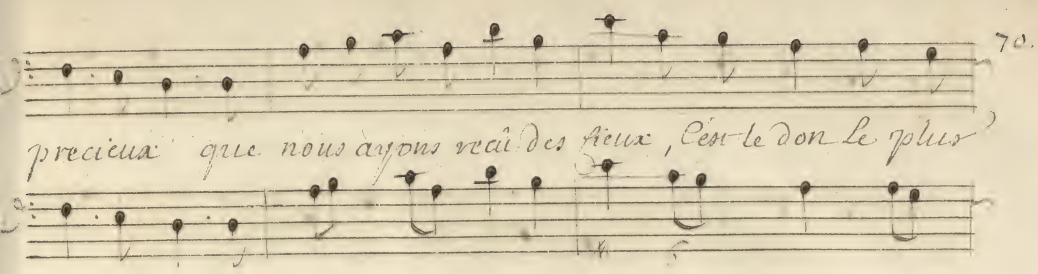 70.
precieux que nous ayons recû des Cieux, C'est le don Le plus